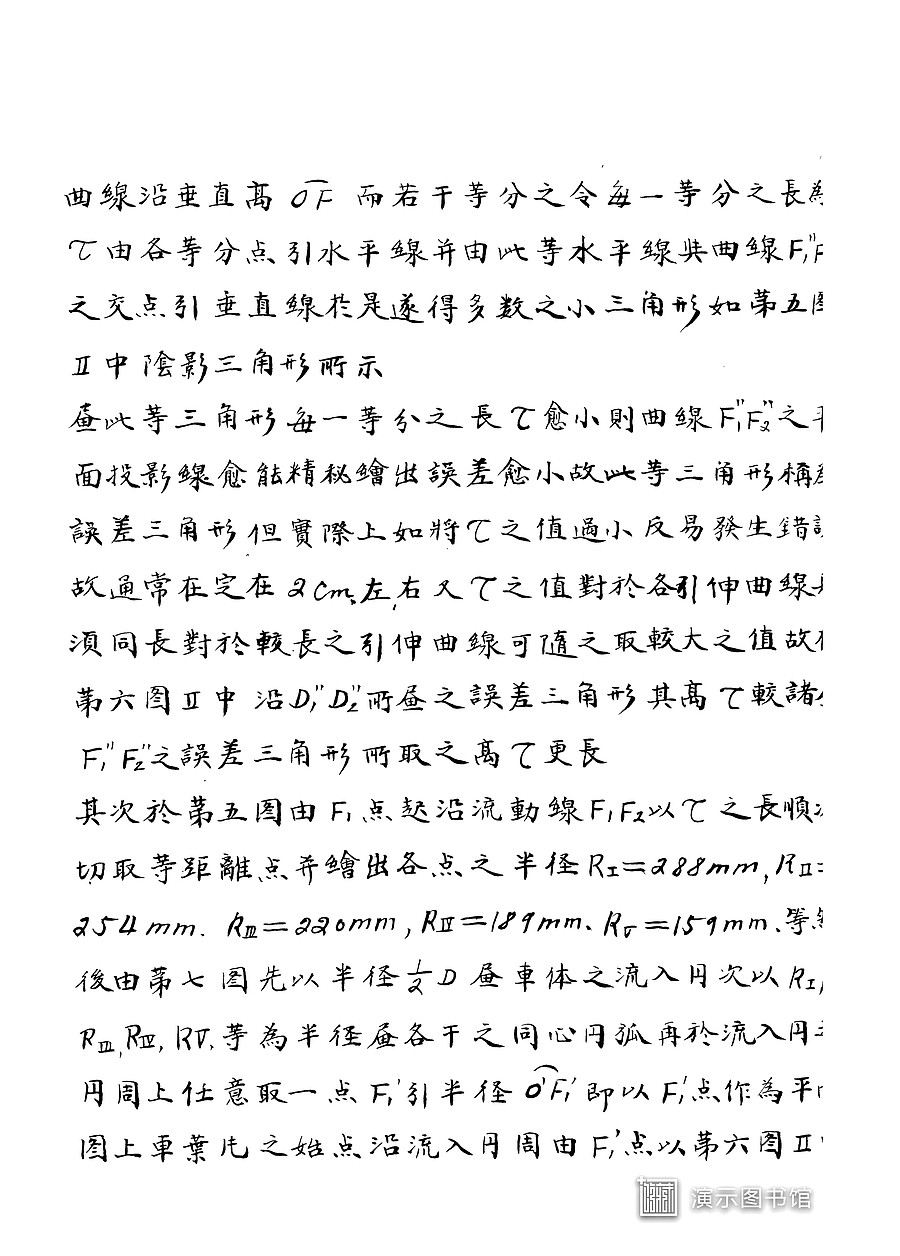 曲線沿垂直高 OF 而若干等分之令每一等分之長為
τ由各等分点引水平線并由此等水平線與曲線F₁"F
之交点引垂直線於是遂得多数之小三角形如第五图
Ⅱ中陰影三角形所示
畫此等三角形每一等分之長τ愈小則曲線F₁"F₂"之平
面投影線愈能精秘繪出誤差愈小故此等三角形稱為
誤差三角形但實際上如將τ之值過小反易發生錯誤
故通常在定在2cm左右又τ之值對於各引伸曲線
須同長對於較長之引伸曲線可隨之取較大之值故
第六图Ⅱ中沿D₁"D₂"所畫之誤差三角形其高τ較諸
F₁"F₂"之誤差三角形所取之高τ更長
其次於第五图由F₁点起沿流動線F₁F₂以τ之長順次
切取等距離点并繪出各点之半径RⅠ=288mm,RⅡ=
254mm. RⅢ=220mm,RⅣ=189mm、RⅤ=159mm、等然
後由第七图先以半径½D畫車体之流入円次以RⅠ,
RⅢ,RⅣ,RⅤ,等為半径畫各干之同心円弧再於流入円
円周上任意取一点F₁'引半径O'F₁'即以F₁'点作為平面
图上車葉片之始点沿流入円周由F₁'点以第六图Ⅱ中
演示图书馆